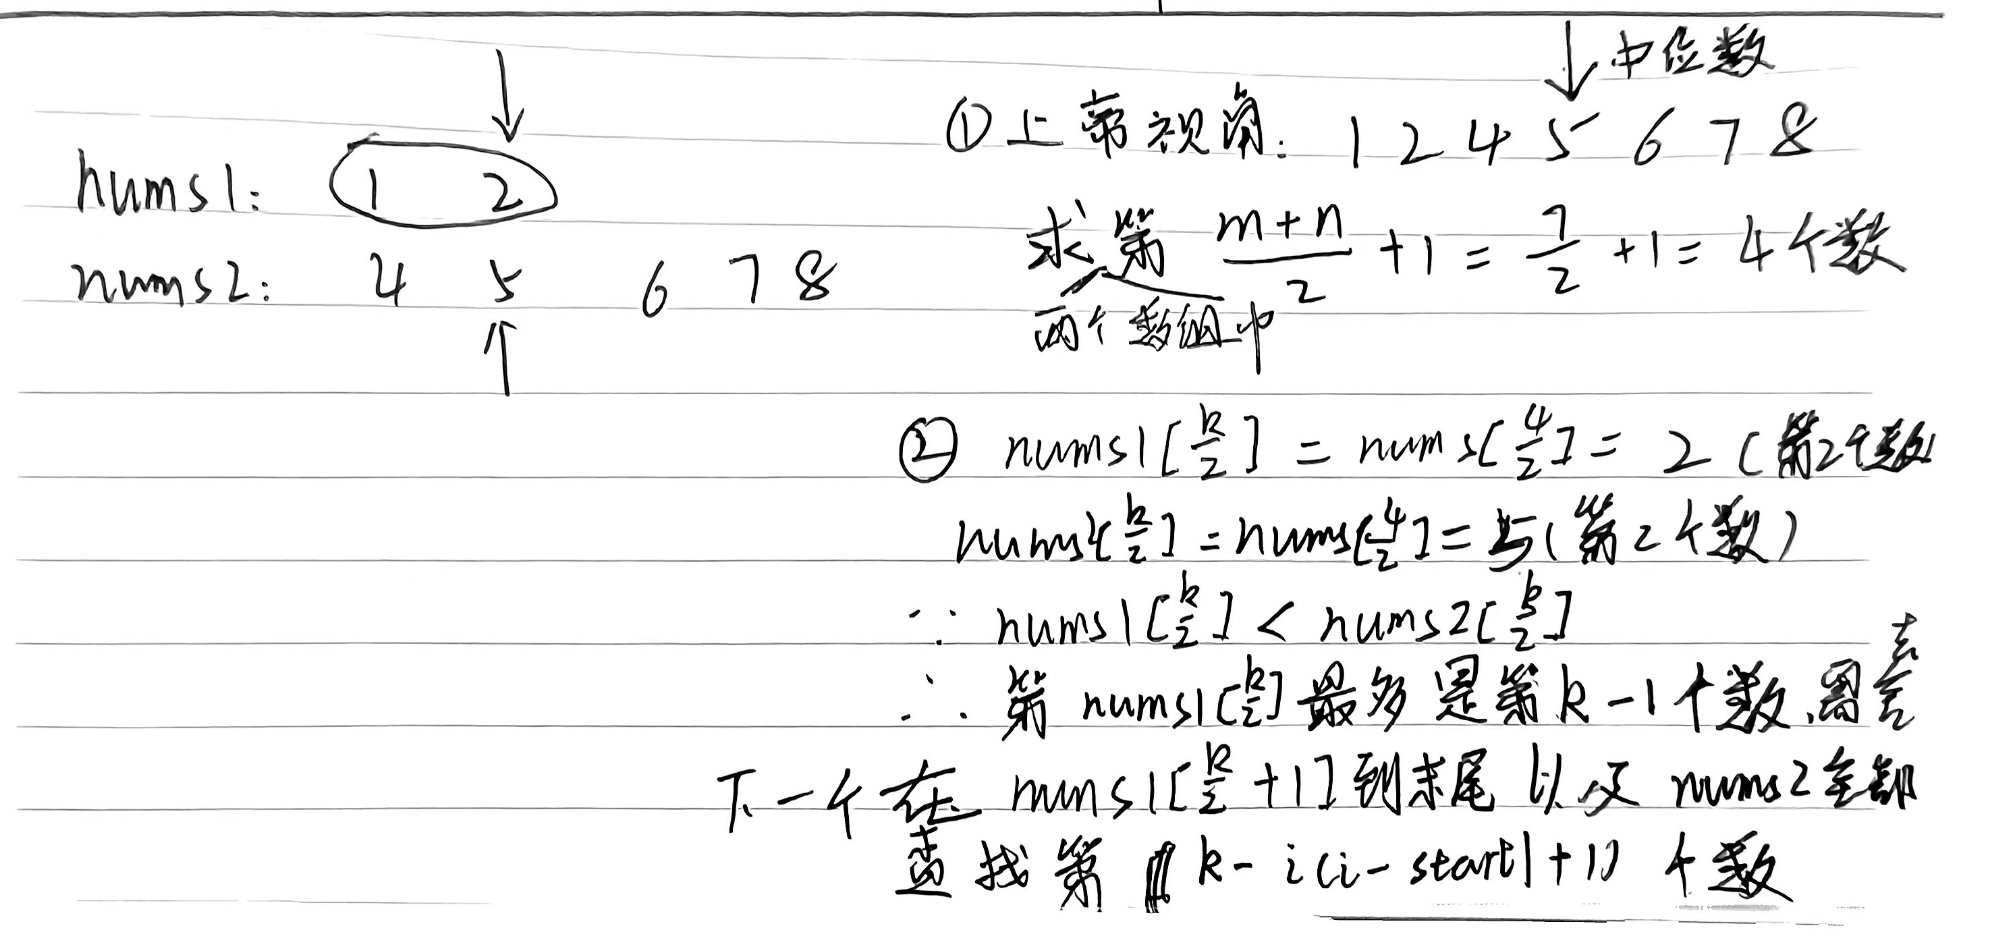 中位数
nums1: 1 2
nums2: 4 5 6 7 8
①上帝视角: 1 2 4 5 6 7 8
求第 (m+n)/2 +1 = 7/2 +1 = 4个数
两个数组中
② nums1[k/2] = nums[4/2] = 2 (第2个数
nums2[k/2] = nums[4/2] = 5 (第2个数)
∵ nums1[k/2] < nums2[k/2]
∴ 第 nums1[k/2] 最多是第k-1个数,需舍去
下一个在 nums1[k/2 +1] 到末尾 以及 nums2全部
查找第 k-i(i-start1+1) 个数